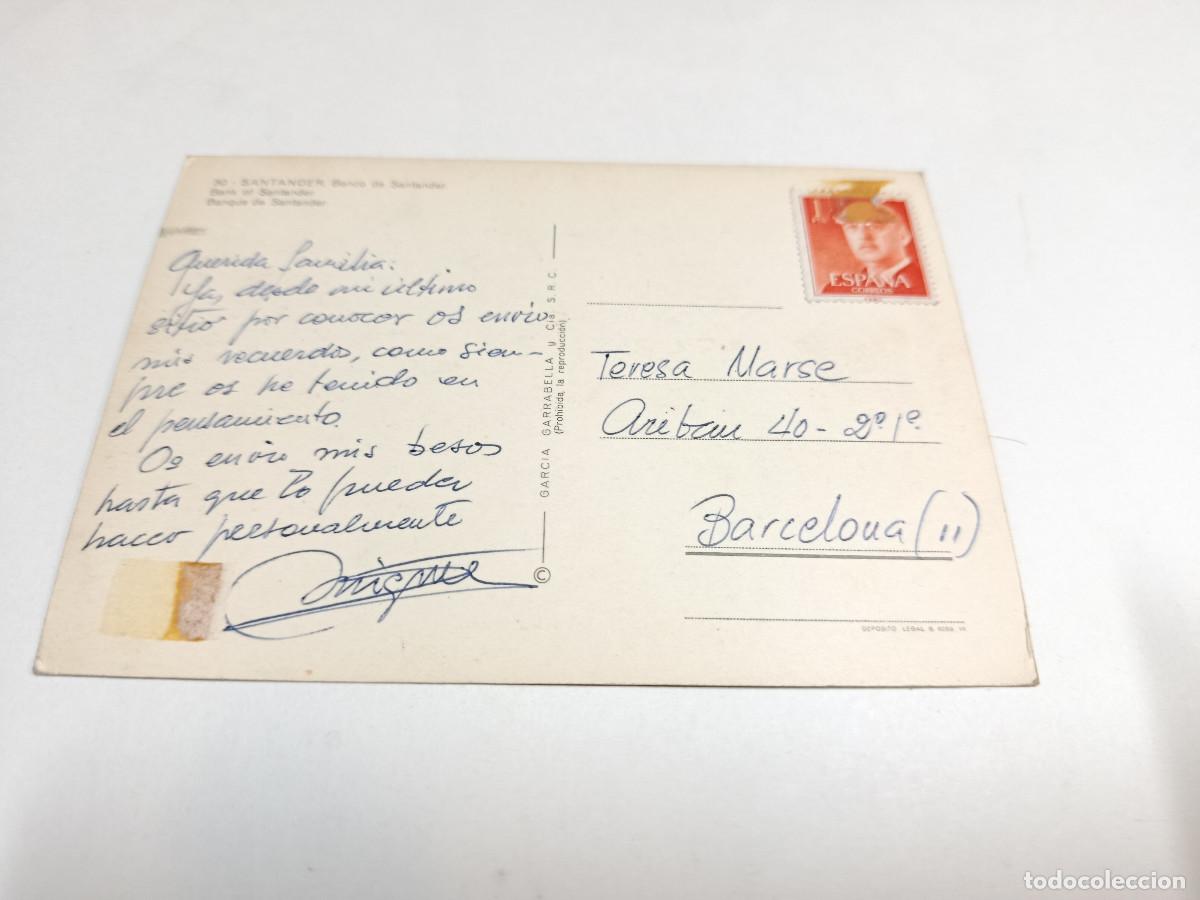 30 - SANTANDER. Banco de Santander
Bank of Santander
Banque de Santander
Querida familia:
Ya, desde mi último
sitio por conocer os envio
mis recuerdos, como siem-
pre os he tenido en
el pensamiento.
Os envio mis besos
hasta que lo pueda
hacer personalmente
Enrique
GARCIA GARRABELLA y Cia. S.R.C.
(Prohibida la reproducción)
©
1
ESPAÑA
CORREOS
Teresa Marse
Aribau 40 - 2º 1º
Barcelona (11)
DEPOSITO LEGAL B.
todocoleccion